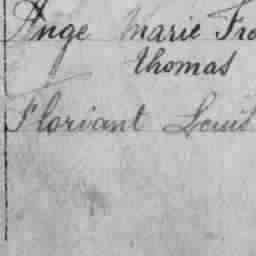 Ange Marie Fra
thomas
Floriant Louis